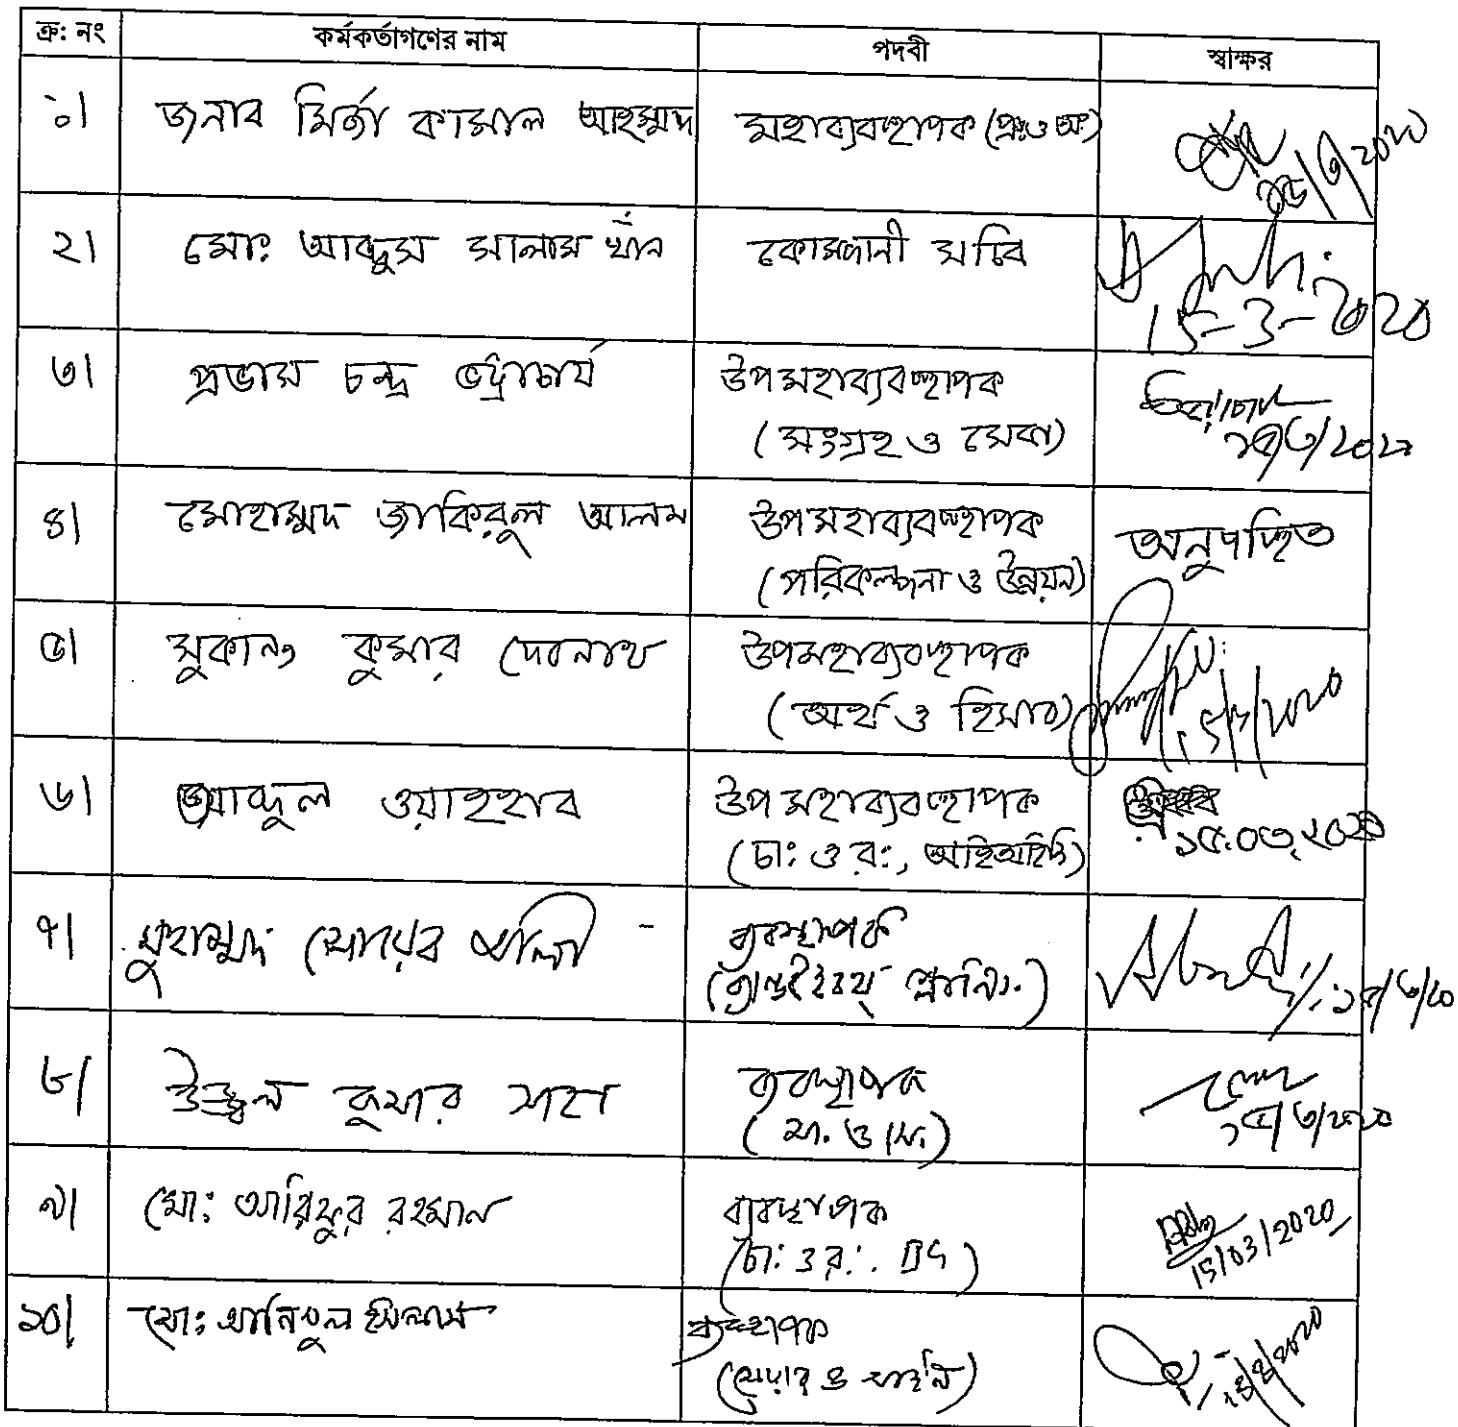 ক্র: নং কর্মকর্তাগণের নাম পদবী স্বাক্ষর
১। জনাব মির্জা কামাল আহম্মদ মহাব্যবস্থাপক (প্রঃ ও অঃ) ১৫/৩/২০২০
২। মোঃ আব্দুস সালাম খাঁন কোম্পানী সচিব 15-3-2020
৩। প্রভাস চন্দ্র ভট্টাচার্য উপমহাব্যবস্থাপক
(সংগ্রহ ও সেবা) ১৫/৩/২০২০
৪। মোহাম্মদ জাকিরুল আলম উপমহাব্যবস্থাপক অনুপস্থিত
(পরিকল্পনা ও উন্নয়ন)
৫। সুকান্ত কুমার দেবনাথ উপমহাব্যবস্থাপক
(অর্থ ও হিসাব) 15/3/2020
৬। আব্দুল ওয়াহহাব উপমহাব্যবস্থাপক
(চাঃ ও রঃ, আইআইডি) ১৫.০৩.২০২০
৭। মুহাম্মদ সোয়েব আলী ব্যবস্থাপক
১৫/৩/২০
৮। উজ্জ্বল কুমার সাহা ব্যবস্থাপক
(সা. ও সে.) ১৫/৩/২০২০
৯। মো: আরিফুর রহমান ব্যবস্থাপক
(চা: ও র:. DG) 15/03/2020
১০। মো: আনিসুল ইসলাম ব্যবস্থাপক
(শেয়ার ও